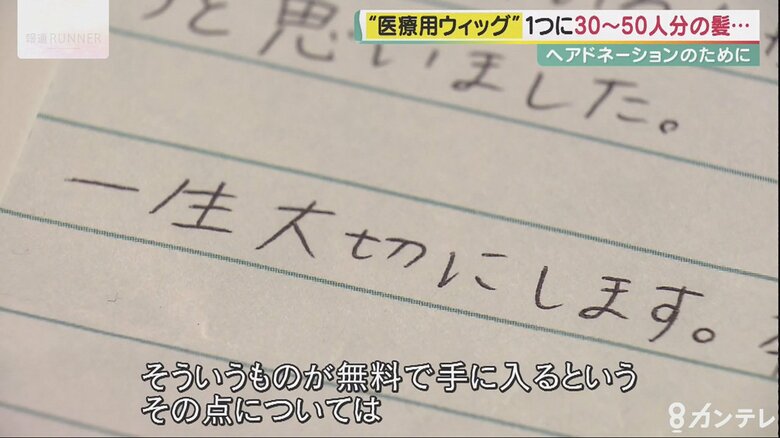 報道RUNNER
“医療用ウィッグ”1つに30～50人分の髪…
ヘアドネーションのために
と思いました。
一生大切にします。
そういうものが無料で手に入るという
その点については
8カンテレ